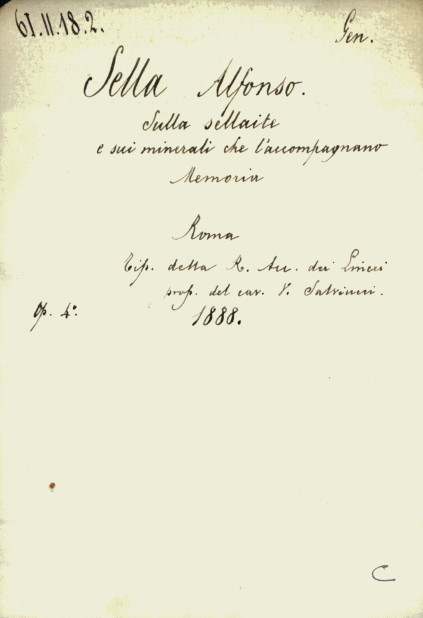 61.II.18.2.
Gen.
Sella Alfonso.
Sulla sellaite
e sui minerali che l'accompagnano
Memoria
Roma
Tip. della R. Acc. dei Lincei
prop. del cav. V. Salviucci.
Op. 4°.
1888.
C